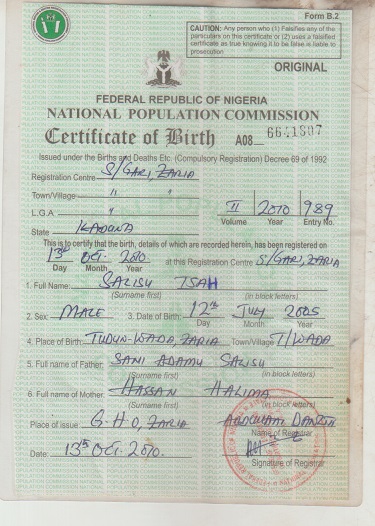 Form B.2
CAUTION: Any person who (1) Falsifies any of the
particulars on this certificate or (2) uses a falsified
certificate as true knowing it to be false is liable to
prosecution
ORIGINAL
FEDERAL REPUBLIC OF NIGERIA
NATIONAL POPULATION COMMISSION
Certificate of Birth A08— 6641807
Issued under the Births and Deaths Etc. (Compulsory Registration) Decree 69 of 1992
Registration Centre S/GARI, ZARIA
Town/Village " "
L.G.A "
II 2010 989
Volume Year Entry No.
State KADUNA
This is to certify that the birth, details of which are recorded herein, has been registered on
13th OCT. 2010 at this Registration Centre S/GARI, ZARIA
Day Month Year
1. Full Name: SALISU ISAH
(Surname first) (in block letters)
2. Sex: MALE 3. Date of Birth: 12th JULY 2005
Day Month Year
4. Place of Birth: TUDUN-WADA, ZARIA Town/Village T/WADA
5. Full name of Father: SANI ADAMU SALISU
(Surname first) (in block letters)
6. Full name of Mother: HASSAN HALIMA
(Surname first) (in block letters)
Place of issue: G.H.O, ZARIA ABDULLAHI
Name of Registrar
Date: 13th OCT. 2010.
Signature of Registrar